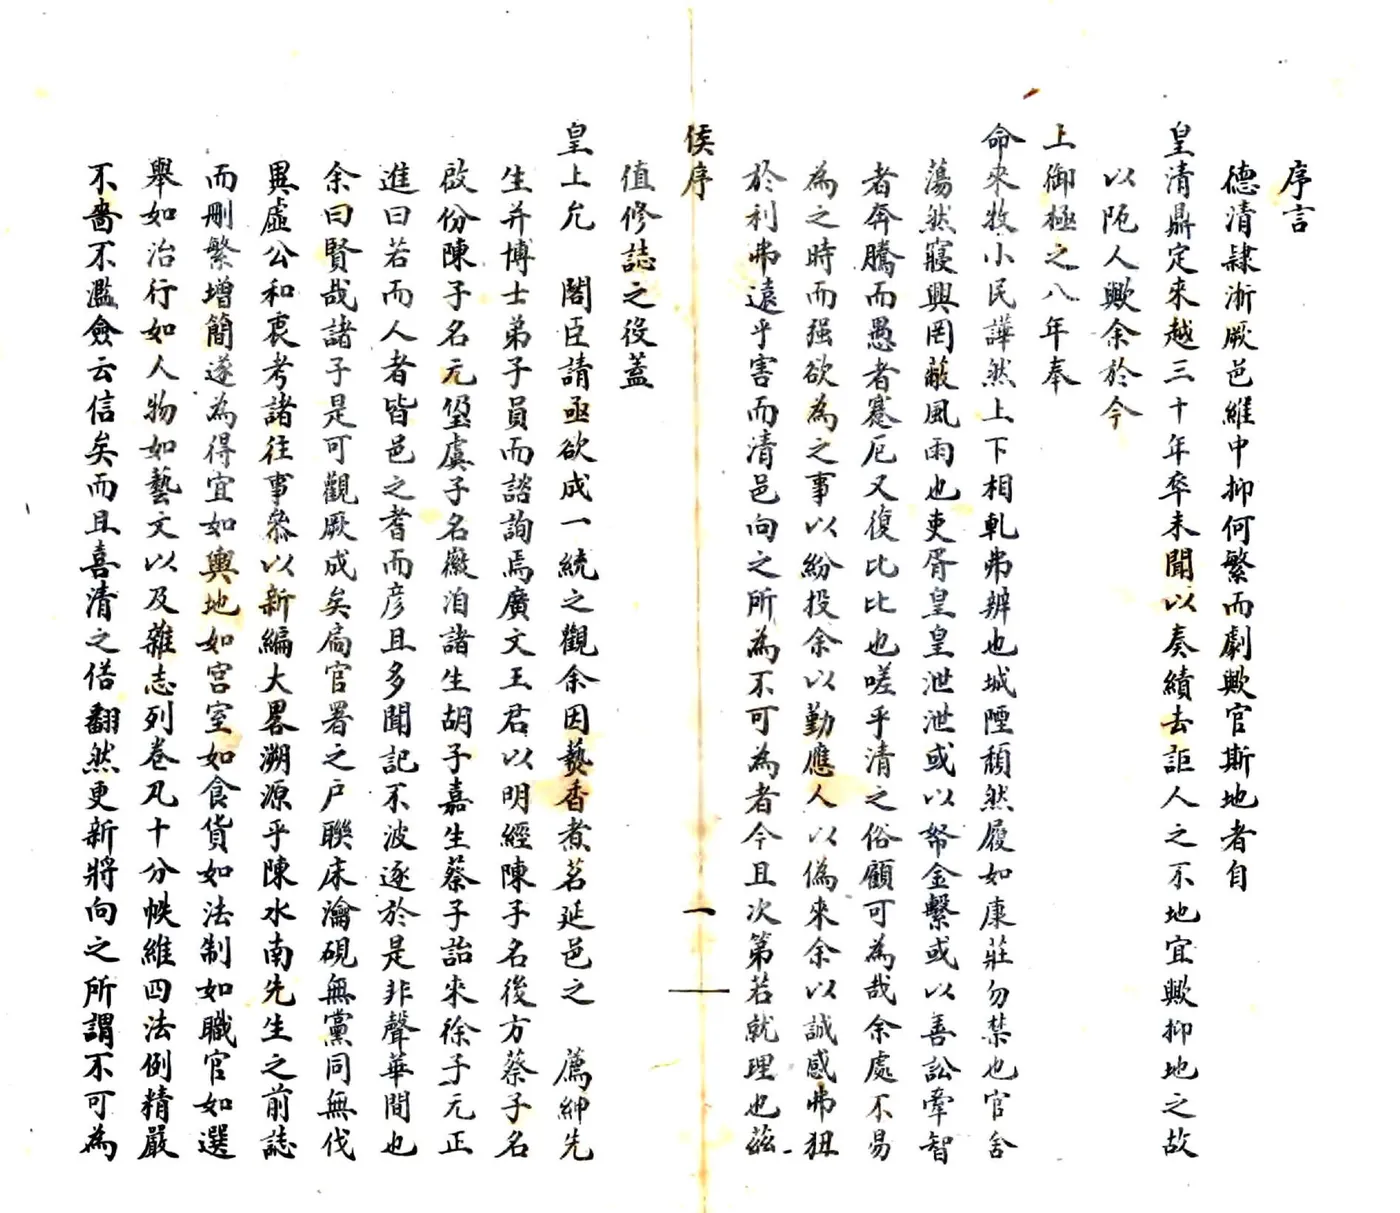 序言
德清隸浙厥邑維中抑何繁而劇歟官斯地者自
皇清鼎定來越三十年卒未聞以奏績去詎人之不地宜歟抑地之故
以阨人歟余於今
上御極之八年奉
命來牧小民譁然上下相軋弗辨也城陻頹然履如康莊勿禁也官舍
蕩然寢興罔蔽風雨也吏胥皇皇泄泄或以帑金繫或以善訟牽智
者奔騰而愚者蹇厄又復比比也嗟乎清之俗顧可為哉余處不易
為之時而强欲為之事以紛投余以勤應人以偽來余以誠感弗狃
於利弗遠乎害而清邑向之所為不可為者今且次第若就理也茲
侯序
一
值修誌之役蓋
皇上允 閣臣請亟欲成一統之觀余因爇香煮茗延邑之 薦紳先
生并博士弟子員而諮詢焉廣文王君以明經陳子名後方蔡子名
啟份陳子名元望虞子名黴洎諸生胡子嘉生蔡子詒來徐子元正
進曰若而人者皆邑之耆而彦且多聞記不波逐於是非聲華間也
余曰賢哉諸子是可觀厥成矣扃官署之户聯床瀹硯無黨同無伐
異虛公和衷考諸往事叅以新編大畧溯源乎陳水南先生之前誌
而刪繁增簡遂為得宜如輿地如宮室如食貨如法制如職官如選
舉如治行如人物如藝文以及雜志列卷凡十分帙維四法例精嚴
不嗇不濫僉云信矣而且喜清之俗翻然更新將向之所謂不可為